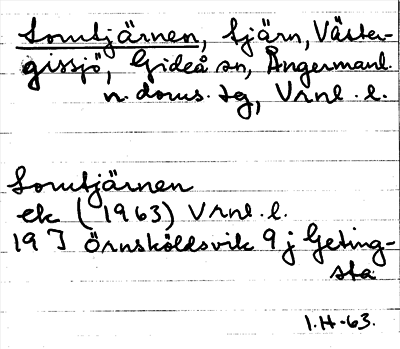 Somtjärnen, tjärn, Väster-
gissjö, Gideå sn, Ångermanl.
n. doms. sg, Vrnl. l.
Somtjärnen
ek (1963) Vrnl. l.
19 I Örnsköldsvik 9 j Geting-
sta
I.H-63.